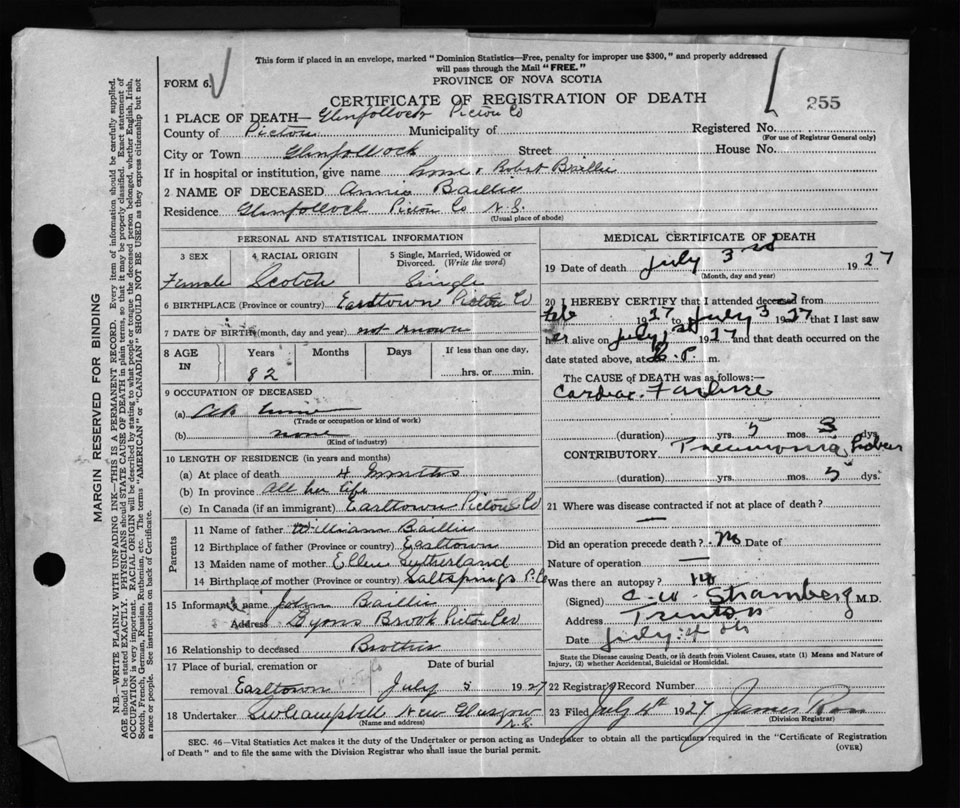 This form if placed in an envelope, marked "Dominion Statistics—Free, penalty for improper use $300," and properly addressed
will pass through the Mail "FREE."
FORM 6.
PROVINCE OF NOVA SCOTIA
CERTIFICATE OF REGISTRATION OF DEATH
255
1 PLACE OF DEATH— Glenfollock Pictou Co
County of Pictou Municipality of Registered No.
(For use of Registrar General only)
City or Town Glenfollock Street House No.
If in hospital or institution, give name Robert Baillie
2 NAME OF DECEASED Annie Baillie
Residence Glenfollock Pictou Co N.S.
(Usual place of abode)
PERSONAL AND STATISTICAL INFORMATION
3 SEX 4 RACIAL ORIGIN 5 Single, Married, Widowed or Divorced. (Write the word)
Female Scotch Single
6 BIRTHPLACE (Province or country) Earltown Pictou Co
7 DATE OF BIRTH (month, day and year) not known
8 AGE IN Years Months Days If less than one day,
82 hrs. or min.
9 OCCUPATION OF DECEASED
(a) At home
(Trade or occupation or kind of work)
(b) none
(Kind of industry)
10 LENGTH OF RESIDENCE (in years and months)
(a) At place of death 4 months
(b) In province all her life
(c) In Canada (if an immigrant) Earltown Pictou Co
Parents
11 Name of father William Baillie
12 Birthplace of father (Province or country) Earltown
13 Maiden name of mother Ellen Sutherland
14 Birthplace of mother (Province or country) Saltsprings P. Co
15 Informant's name John Baillie
Address Lyons Brook Pictou Co
16 Relationship to deceased Brother
17 Place of burial, cremation or Date of burial
removal Earltown July 5 1927
18 Undertaker Campbell New Glasgow
(Name and address) N.S.
MEDICAL CERTIFICATE OF DEATH
19 Date of death July 3rd 1927
(Month, day and year)
20 I HEREBY CERTIFY that I attended deceased from
Feb 1927 to July 3 1927 that I last saw
her alive on July 1st 1927 and that death occurred on the
date stated above, at P. m.
The CAUSE of DEATH was as follows:—
Cardiac Failure
(duration) yrs. mos. dys.
CONTRIBUTORY Pneumonia
(duration) yrs. mos. 5 dys.
21 Where was disease contracted if not at place of death?
Did an operation precede death? No Date of
Nature of operation
Was there an autopsy?
(Signed) C. W. Stramberg M.D.
Address Trenton
Date July 4th
State the Disease causing Death, or in death from Violent Causes, state (1) Means and Nature of
Injury, (2) whether Accidental, Suicidal or Homicidal.
22 Registrar's Record Number
23 Filed July 4th 1927 James Ross
(Division Registrar)
SEC. 46—Vital Statistics Act makes it the duty of the Undertaker or person acting as Undertaker to obtain all the particulars required in the "Certificate of Registration
of Death" and to file the same with the Division Registrar who shall issue the burial permit.
(OVER)
MARGIN RESERVED FOR BINDING
N.B.—WRITE PLAINLY WITH UNFADING INK—THIS IS A PERMANENT RECORD. Every item of information should be carefully supplied.
AGE should be stated EXACTLY. PHYSICIANS should STATE CAUSE OF DEATH in plain terms, so that it may be properly classified. Exact statement of
OCCUPATION is very important. RACIAL ORIGIN will be described by stating to what people or tongue the deceased person belonged, whether English, Irish,
Scotch, French, German, Russian, Ruthenian, etc. The terms "AMERICAN" or "CANADIAN" SHOULD NOT BE USED as they express citizenship but not
a race or people. See instructions on back of Certificate.